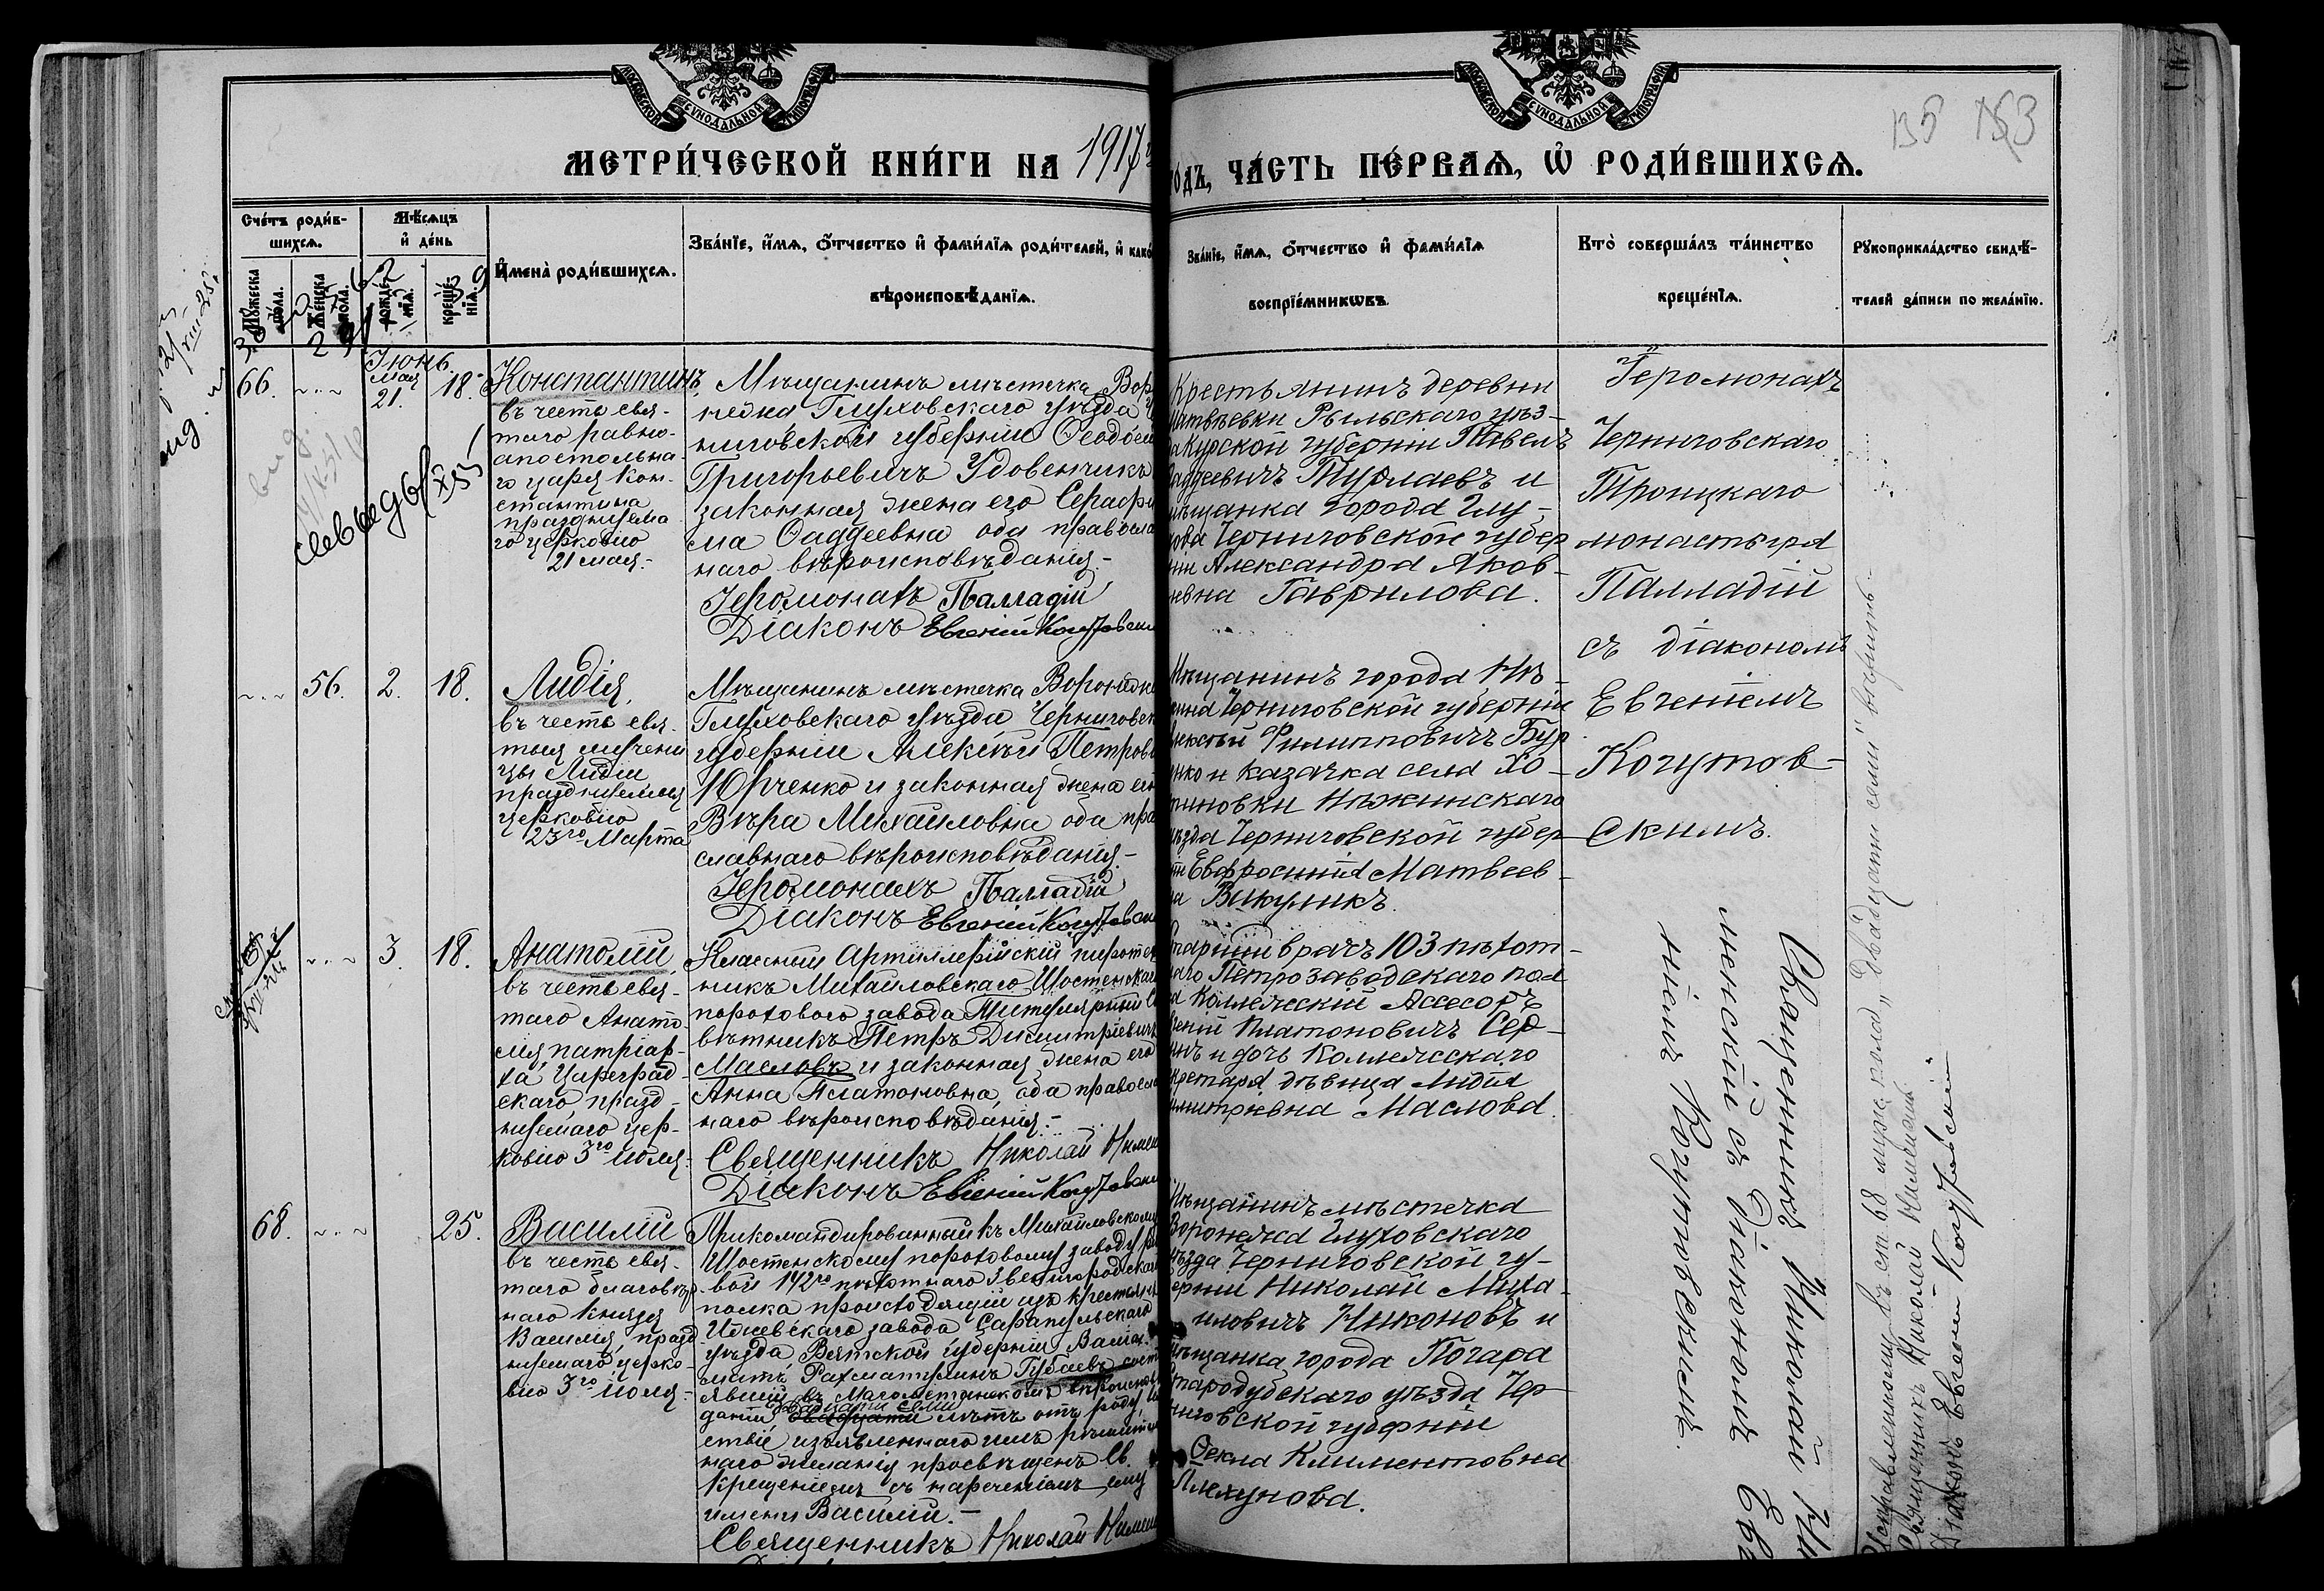 МОСКОВСКОЙ СУНОДАЛЬНОЙ ТИПОГРАФІИ
МЕТРИ́ЧЕСКОЙ КНИ́ГИ НА 1917
МОСКОВСКОЙ СУНОДАЛЬНОЙ ТИПОГРАФІИ
го́дъ, ЧА́СТЬ ПЕ́РВАѦ, Ѿ РОДИ́ВШИХСѦ.
135 153
Сче́тъ роди́в-
шихсѧ.
Мѹжеска пола.
Женска пола.
Мѣсѧцъ
и де́нь
рожде́нїѧ.
креще́нїѧ.
Имена̀ роди́вшихсѧ.
Зва́нїе, и́мѧ, о́тчество и фами́лїѧ роди́телей, и како́
вѣроисповѣ́данїѧ.
Зва́нїе, и́мѧ, о́тчество и фами́лїѧ
воспрїе́мникѡвъ.
Кто̀ соверша́лъ та́инство
креще́нїѧ.
Рѹкоприкла́дство свидѣ́-
телей за́писи по жела́нїю.
Іюнь.
66.
Мая
21.
18.
Константинъ,
въ честь свя-
таго равно-
апостольна-
го царя Кон-
стантина
празднуема
го церковію
21 мая.-
Мѣщанинъ мѣстечка Вор
нежа Глуховскаго уѣзда Че
ниговской губерніи Ѳеодос
Григорьевичъ Удовенчикъ
законная жена его Серафи
ма Ѳаддеевна оба правосла
наго вѣроисповѣданія.-
Іеромонахъ Палладій
Діаконъ Евгеній Когутовскі
Крестьянинъ деревни
Матвѣевки Рыльскаго уѣз-
да Курской губерніи Павелъ
Ѳаддеевичъ Турлаевъ и
мѣщанка города Глу-
хова Черниговской губер
ніи Александра Яков-
левна Гаврилова.
Іеромонахъ
Черниговскаго
Троицкаго
монастыря
Палладій
съ діакономъ
Евгеніемъ
Когутов-
скимъ.
56.
2.
18.
Лидія,
въ честь свя-
тыя мучени
цы Лидіи
празднуемыя
церковію
23го Марта
Мѣщанинъ мѣстечка Воронежа
Глуховскаго уѣзда Черниговск
губерніи Алексѣй Петрови
Юрченко и законная жена его
Вѣра Михайловна оба пра
славнаго вѣроисповѣданія.-
Іеромонахъ Палладій
Діаконъ Евгеній Когутовскі
Мѣщанинъ города Нѣ-
жина Черниговской губерніи
Алексѣй Филипповичъ Бур
енко и казачка села Хо-
тиновки Нѣжинскаго
уѣзда Черниговской губер
ніи Евфросинія Матвеев-
на Викуликъ.
3.
18.
Анатолій,
въ честь свя-
таго Анато-
лія патріар-
ха Цареград-
скаго, празд-
нуемаго цер-
ковію 3го іюля.-
Классный Артиллерійскій пиротех
никъ Михайловскаго Шостенскаго
порохового завода Титулярный Со
вѣтникъ Петръ Димитріевичъ
Масловъ и законная жена его
Анна Платоновна, оба правосла
наго вѣроисповѣданія.-
Священникъ Николай
Діаконъ Евгеній Когутовскі
Старшій врачъ 103 пѣхот-
наго Петрозаводскаго пол
ка Коллежскій Ассесоръ
Евгеній Платоновичъ
и дочь Коллежскаго
Секретаря дѣвица Лидія
Димитріевна Маслова.
68.
25.
Василій
въ честь свя-
таго благовѣр-
наго Князя
Василія, празд
нуемаго церко-
вію 3го іюля.-
Прикомандированный къ Михайловскому
Шостенскому пороховому заводу ря
вой 142го пѣхотнаго Звенигородскаго
полка происходящій изъ крестьянъ
Ижевскаго завода Сарапульскаго
уѣзда Вятской губерніи
Рахматулинъ Губаевъ сост
явшій въ Магометанскомъ вѣроиспов
даніи двадцати семи лѣтъ отъ роду,
ствіе изъявленнаго имъ рѣшитель
наго желанія просвѣщенъ Св.
Крещеніемъ съ нареченіемъ ему
имени Василій.-
Священникъ Николай
Мѣщанинъ мѣстечка
Воронежа Глуховскаго
уѣзда Черниговской гу-
берніи Николай Миха
иловичъ Никоновъ и
мѣщанка города Погара
Стародубскаго уѣзда Чер-
ниговской губерніи
Ѳекла Климентовна
Плехунова.
Священникъ Николай
съ діакономъ Ев
Когутовскимъ.
Исправленному въ ст. 68 муж. пола „двадцати семи" вѣрить.
Священникъ Николай
Діаконъ Евгеній Когутовскій